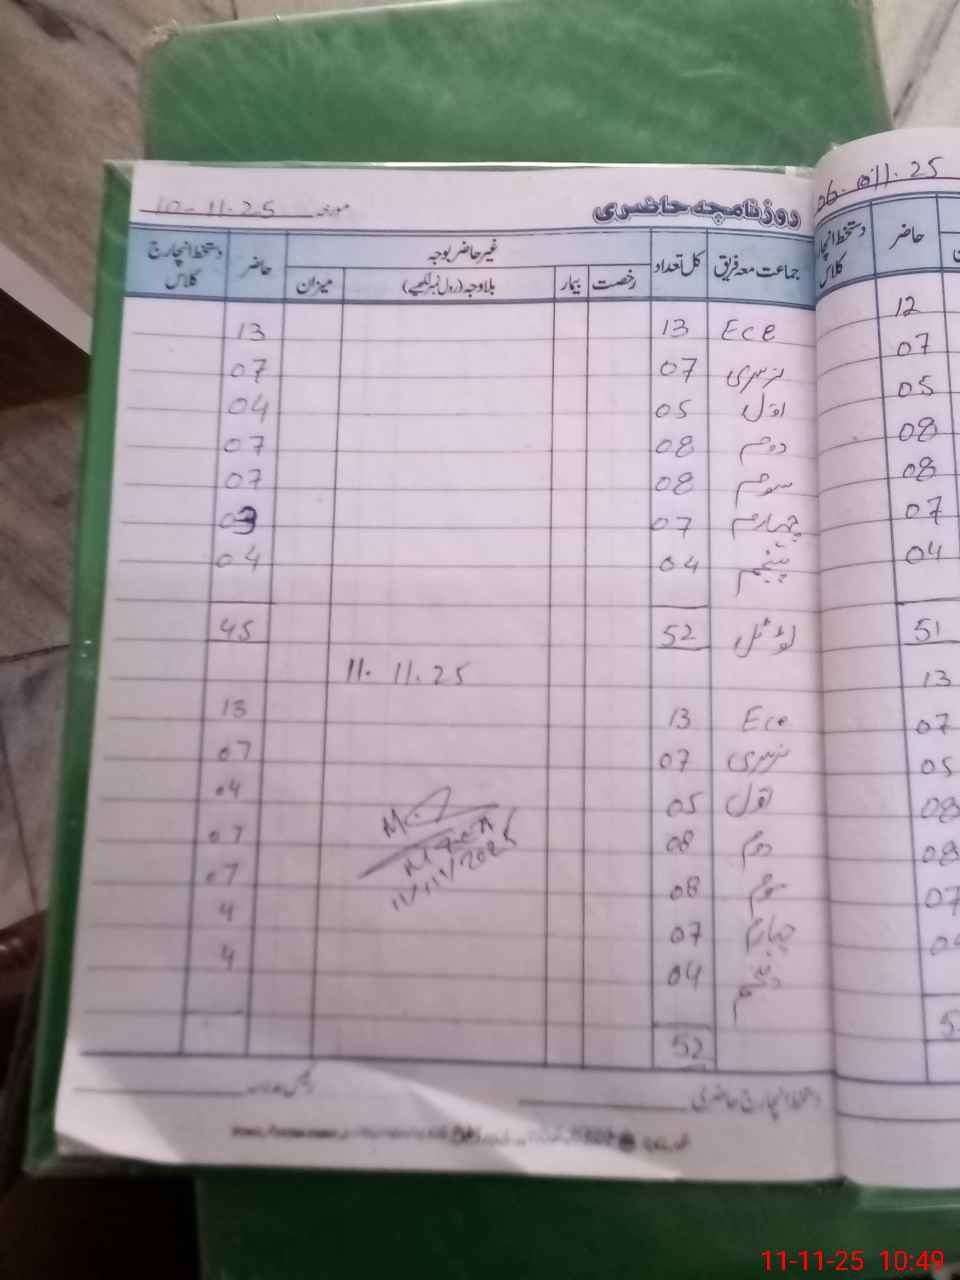 روزنامچہ حاضری مورخہ 10-11-25
جماعت معہ فریق کل تعداد غیر حاضر بوجہ حاضر دستخط انچارج کلاس
رخصت بیمار بلاوجہ (رول نمبر لکھیے) میزان
Ece 13 13
نرسری 07 07
اول 05 04
دوم 08 07
سوم 08 07
چہارم 07 03
پنجم 04 04
ٹوٹل 52 45
11. 11. 25
Ece 13 13
نرسری 07 07
اول 05 04
دوم 08 07
سوم 08 07
چہارم 07 4
پنجم 04 4
52
11/11/2025
دستخط انچارج حاضری
06-011.25
دستخط انچارج کلاس
حاضر
12
07
05
08
08
07
04
51
13
07
05
08
08
07
11-11-25 10:49